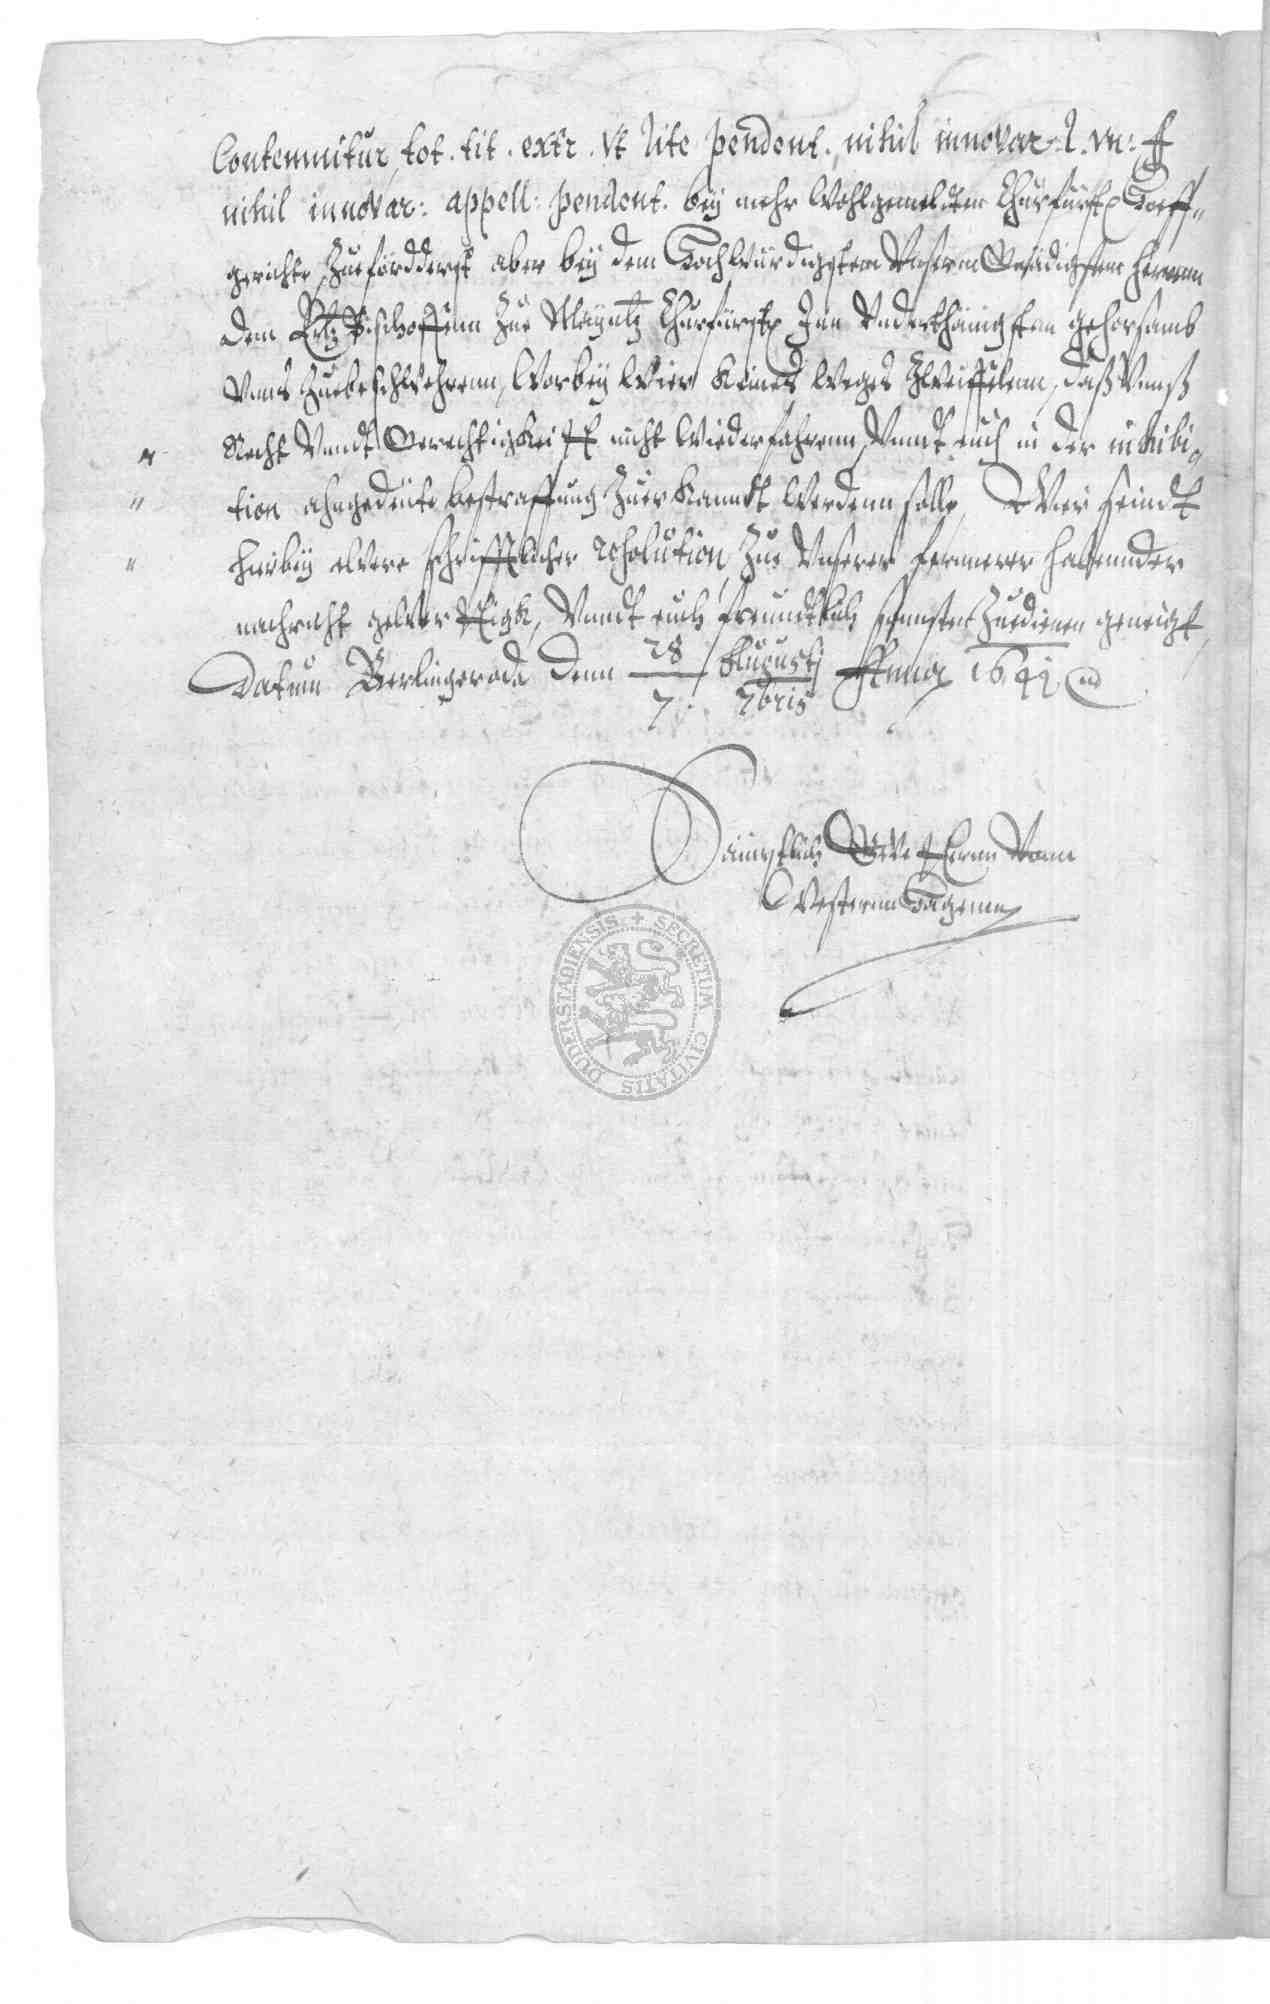 Contemnitur, tot. tit. extr. Vt lite pendent. nihil innovar. l. vn: ff
nihil innovar: appell: pendent. bey mehr Wohlgemeldtem Churfürstl. Hoeff„
gerichte, Zueförderst aber bey dem HochWürdigstenn Vnserm Gnädigsten herrnn
dem Ertz Bischoffenn Zue Mayntz Churfürstl. Inn Vnderthänigsten gehorsamb
Vnns Zuebeschwehrenn, Worbey Wier Keines Weges Zweiffelenn, daß Vnnß
Recht Vnndt Gerechtigkeitt nicht Wiederfahrenn, Vnndt euch in der inhibi„
tion ahngedeute bestraffung Zuer Kanndt Werdenn solle, Wier seindt
hierbey ewere schrifftlicher resolution, Zue Vnserer fernerer habennder
nachricht gewerttigk, Vnndt euch freundtlich sonnsten Zuedienen geneigt,
Datum Berlingerode denn 28 Augusti / 7. 7bris Anno 1641
Sämptliche Gevetternn Vonn
Westernnhagenn
SECRETUM CIVITATIS DUDERSTADIENSIS